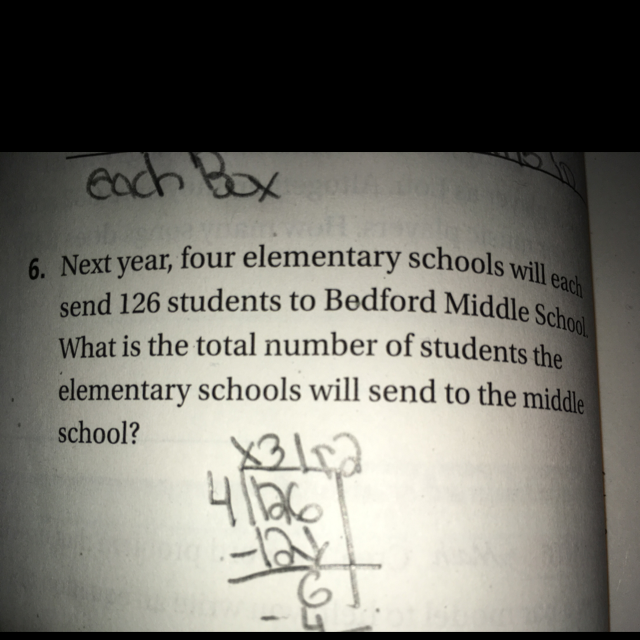 each Box
6. Next year, four elementary schools will each
send 126 students to Bedford Middle School.
What is the total number of students the
elementary schools will send to the middle
school?
x31r2
4126
-12
6
- 4